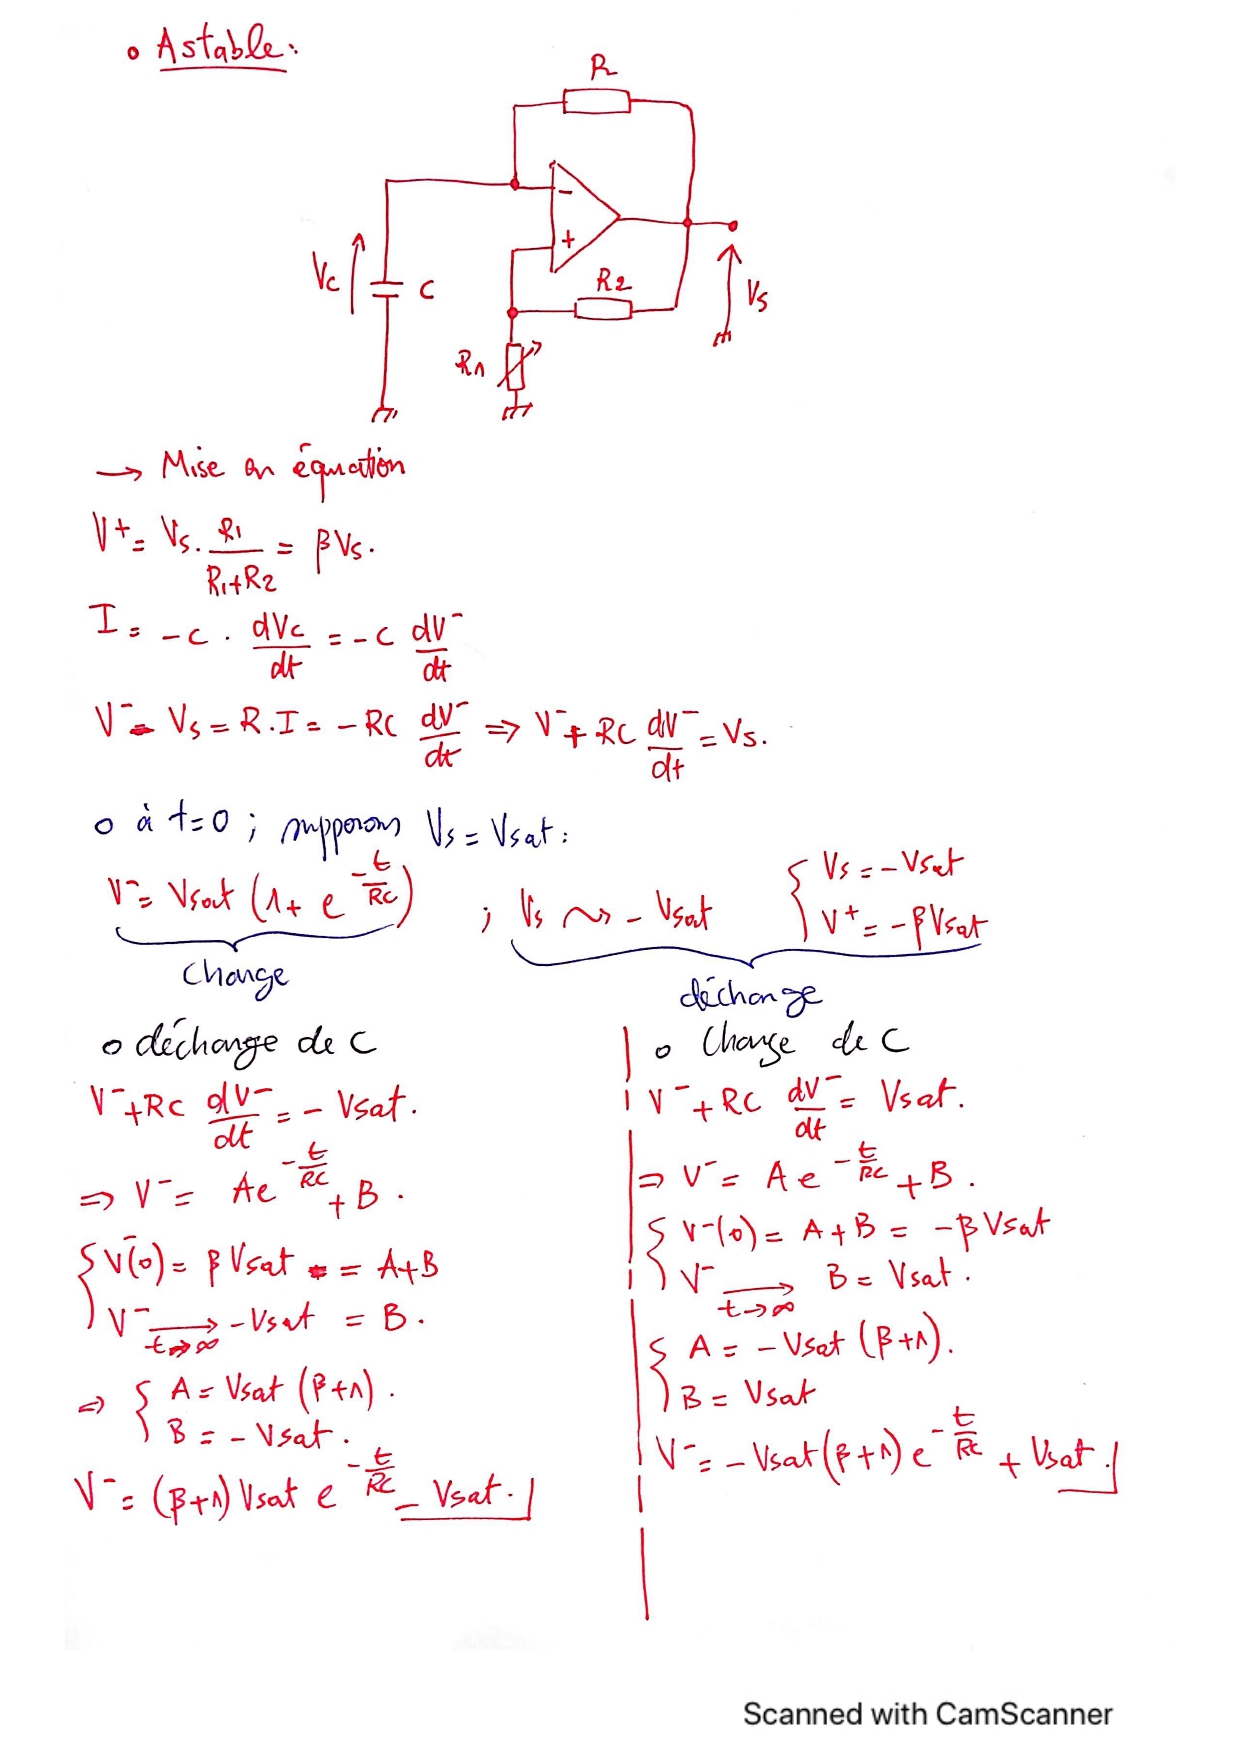 o Astable:
R
-
+
Vc
C
R2
Vs
R1
→ Mise en équation
V+ = Vs. R1/(R1+R2) = βVs.
I = -C . dVc/dt = -C dV-/dt
V- - Vs = R.I = -RC dV-/dt ⇒ V- + RC dV-/dt = Vs.
o à t=0 ; supposons Vs = Vsat :
V- = Vsat (1 + e^(-t/RC)) ; Vs ⇝ - Vsat { Vs = -Vsat
V+ = -βVsat
Charge
décharge
o décharge de C
V- + RC dV-/dt = - Vsat.
⇒ V- = Ae^(-t/RC) + B .
{ V-(0) = βVsat = A+B
V- →(t→∞) -Vsat = B .
⇒ { A = Vsat (β+1) .
B = - Vsat .
V- = (β+1) Vsat e^(-t/RC) - Vsat.
o Charge de C
V- + RC dV-/dt = Vsat.
⇒ V- = A e^(-t/RC) + B .
{ V-(0) = A + B = -βVsat
V- →(t→∞) B = Vsat .
{ A = - Vsat (β+1).
B = Vsat
V- = - Vsat (β+1) e^(-t/RC) + Vsat.
Scanned with CamScanner